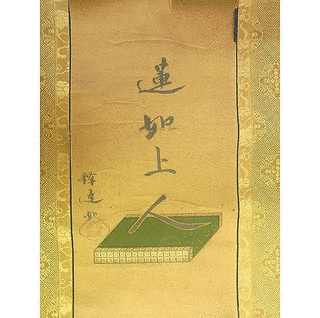 蓮如上人
釋達如